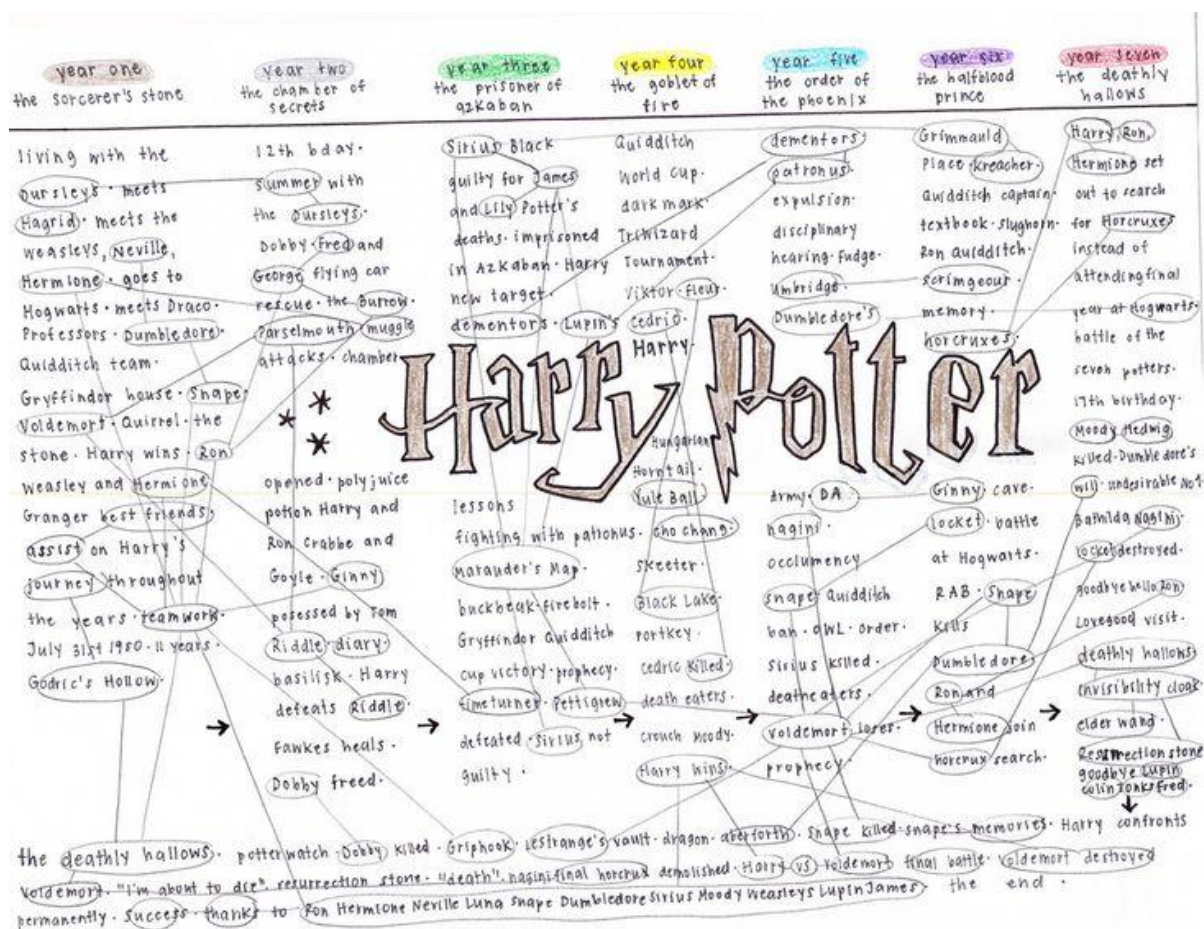 year one
the sorcerer's stone
living with the
Dursleys · meets
Hagrid · meets the
weasleys, Neville,
Hermione · goes to
Hogwarts · meets Draco ·
Professors · Dumbledore ·
Quidditch team ·
Gryffindor house · Snape ·
Voldemort · Quirrel · the
stone · Harry wins · Ron
Weasley and Hermione
Granger best friends,
assist on Harry's
journey throughout
the years · teamwork ·
July 31st 1980 · 11 years ·
Godric's Hollow ·
year two
the chamber of
secrets
12th bday ·
summer with
the Dursleys ·
Dobby · Fred and
George flying car
rescue · the Burrow ·
Parselmouth muggle
attacks · chamber
opened · polyjuice
potion Harry and
Ron Crabbe and
Goyle · Ginny
posessed by Tom
Riddle · diary ·
basilisk · Harry
defeats Riddle ·
Fawkes heals ·
Dobby freed ·
year three
the prisoner of
azkaban
Sirius Black
guilty for James
and Lily Potter's
deaths · imprisoned
in Azkaban · Harry
new target ·
dementors · Lupin's
lessons
fighting with patronus ·
Marauder's Map ·
buckbeak · firebolt ·
Gryffindor Quidditch
cup victory · prophecy ·
timeturner · Pettigrew
defeated · Sirius not
guilty ·
year four
the goblet of
fire
Quidditch
World Cup ·
dark mark ·
Triwizard
Tournament ·
Viktor · Fleur
Cedric ·
Harry ·
Hungarian
Horntail ·
Yule Ball ·
cho chang ·
skeeter ·
Black Lake ·
Portkey ·
cedric killed ·
death eaters ·
crouch moody ·
Harry wins ·
year five
the order of
the phoenix
dementors ·
patronus ·
expulsion ·
disciplinary
hearing · Fudge ·
Umbridge ·
Dumbledore's
Army · DA ·
nagini ·
occlumency
snape · Quidditch
ban · OWL · order ·
sirius killed ·
deatheaters ·
voldemort loses ·
prophecy ·
year six
the halfblood
prince
Grimmauld
Place · kreacher ·
Quidditch captain ·
textbook · slughorn ·
Ron Quidditch ·
scrimgeour ·
memory ·
horcruxes ·
Ginny · cave ·
locket · battle
at Hogwarts ·
RAB · Snape
kills
Dumbledore ·
Ron and
Hermione join
horcrux search ·
year seven
the deathly
hallows
Harry, Ron,
Hermione set
out to search
for Horcruxes
instead of
attending final
year at Hogwarts ·
battle of the
seven potters ·
17th birthday ·
Moody Hedwig
killed · Dumbledore's
will · undesirable No1 ·
Bathilda Nagini ·
locket destroyed ·
goodbye hello Ron
Lovegood visit ·
deathly hallows
invisibility cloak
elder wand ·
Resurrection stone
goodbye Lupin
colin Tonks Fred ·
Harry Potter
the deathly hallows · potterwatch · Dobby killed · Griphook · Lestrange's vault · dragon · aberforth · Snape killed · snape's memories · Harry confronts
voldemort · "I'm about to die" · resurrection stone · "death" · nagini final horcrux demolished · Harry vs voldemort final battle · voldemort destroyed
permanently · Success · thanks to Ron Hermione Neville Luna Snape Dumbledore Sirius Moody Weasleys Lupin James · the end ·